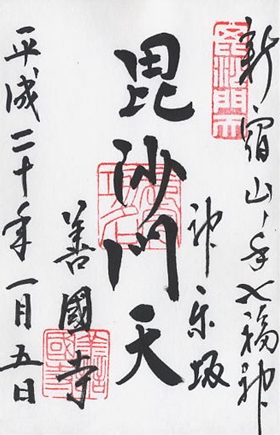 新宿山ノ手七福神
毘沙門天
神楽坂
毘沙門天
善國寺
平成二十年一月五日